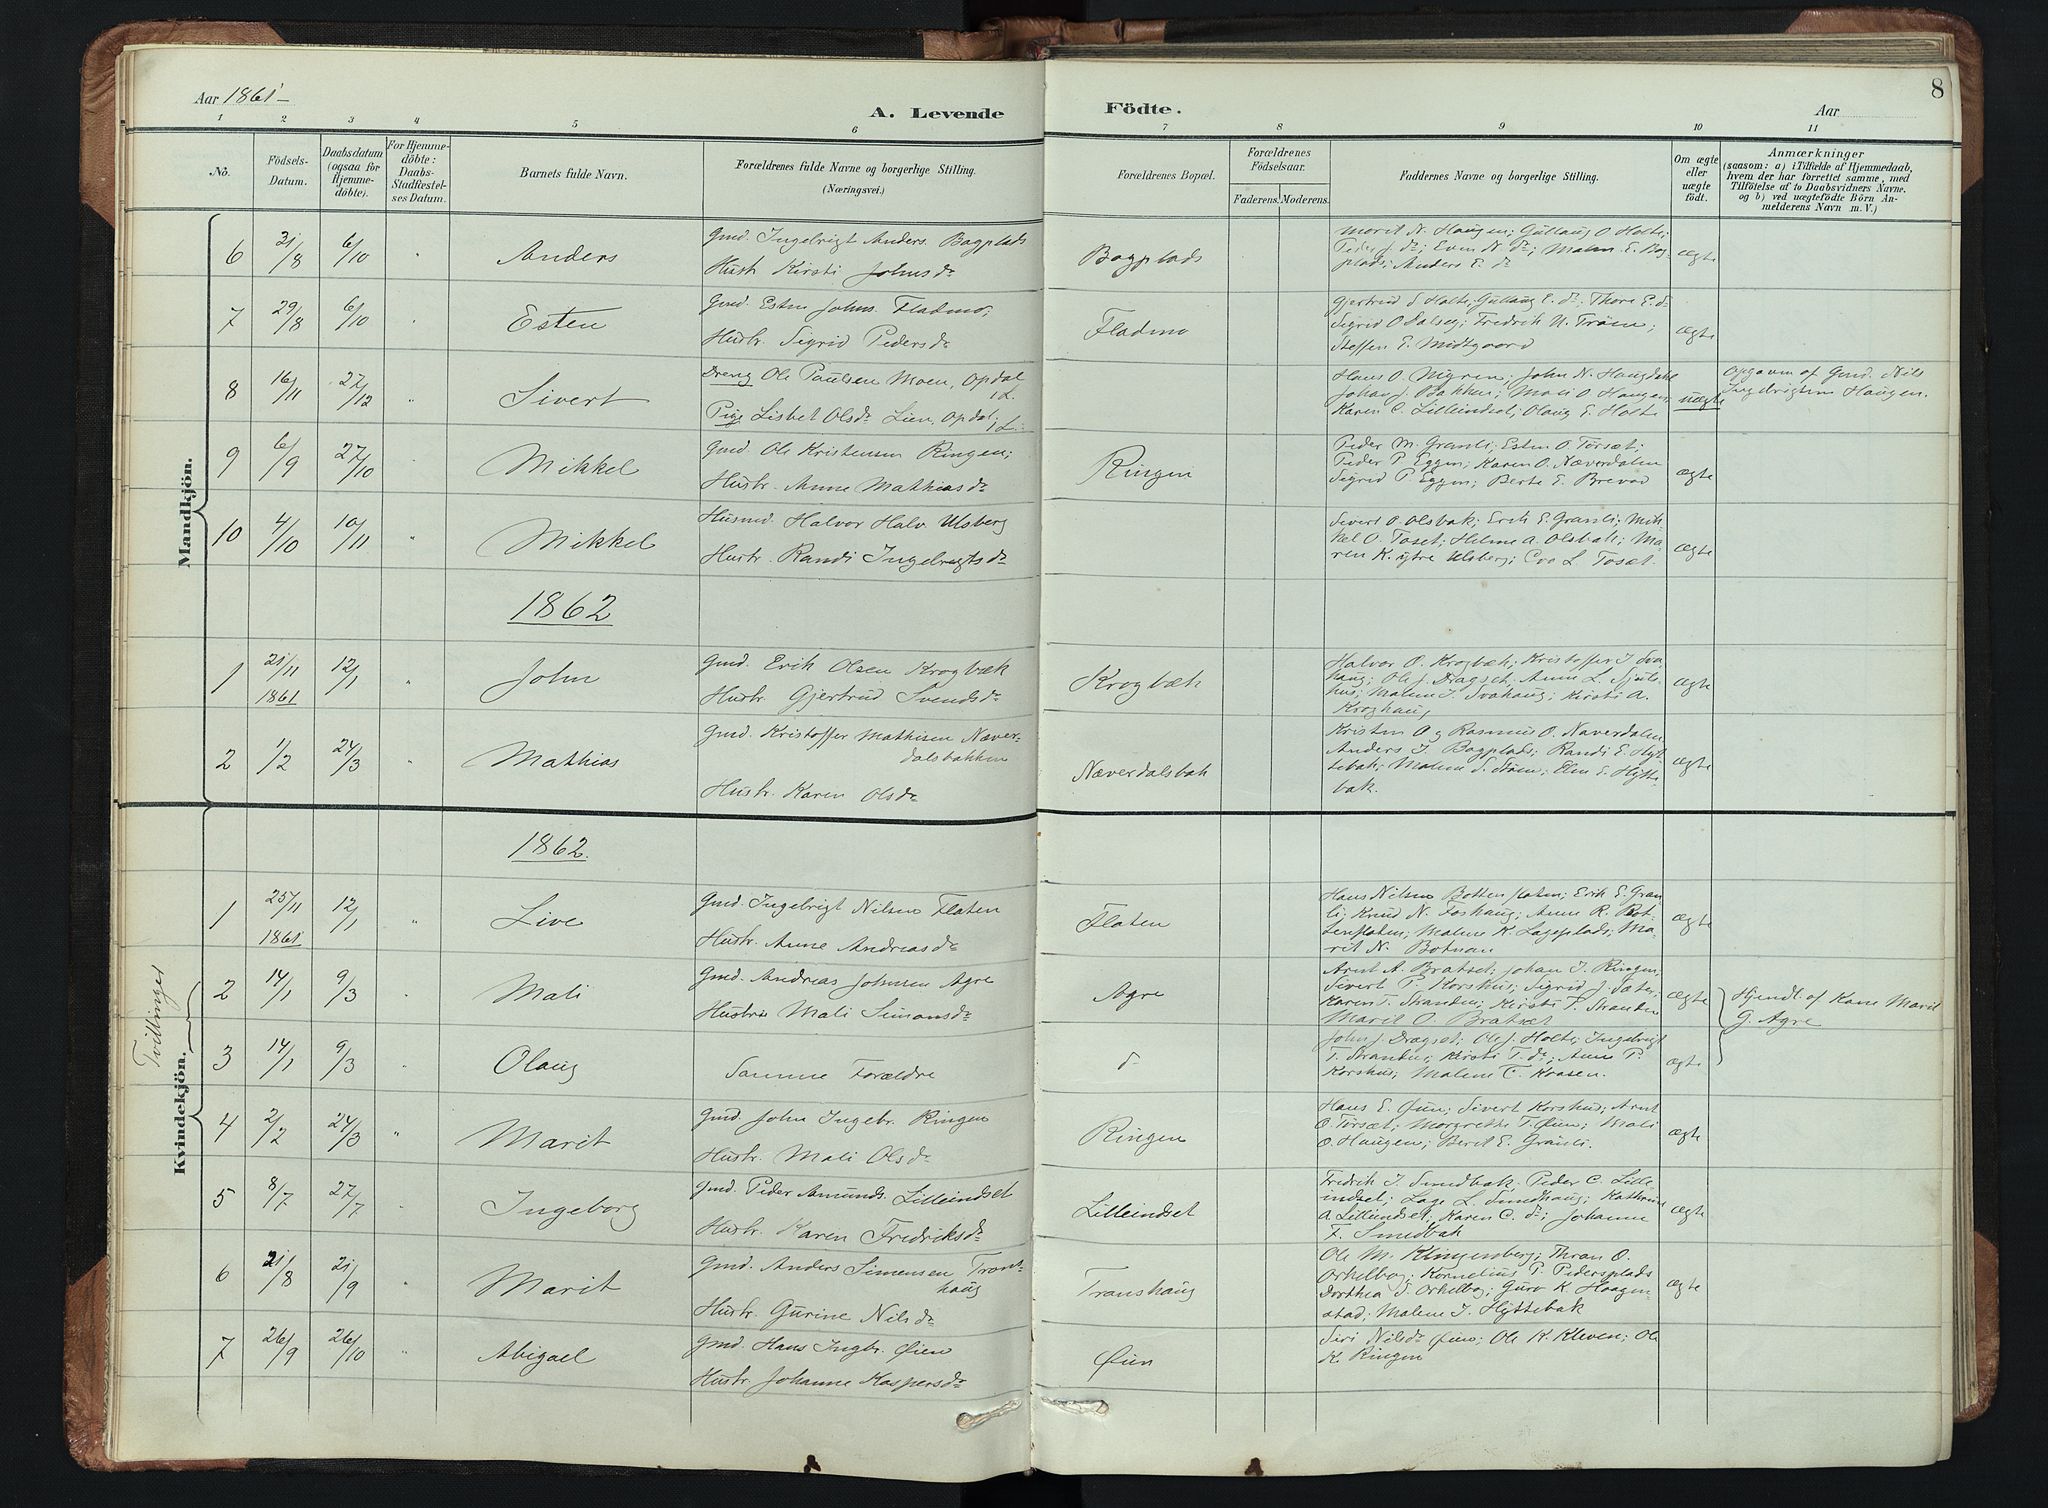 8
Aar 1861-
A. Levende
Födte.
Aar
1 2 3 4 5 6 7 8 9 10 11
No.
Födsels-
Datum.
Daabsdatum
(ogsaa for
Hjemme-
döbte).
For Hjemme-
döbte:
Daabs-
Stadfestel-
ses Datum.
Barnets fulde Navn.
Forældrenes fulde Navne og borgerlige Stilling.
(Næringsvei.)
Forældrenes Bopæl.
Forældrenes
Födselsaar.
Faderens. Moderens.
Faddernes Navne og borgerlige Stilling.
Om ægte
eller
uægte
födt.
Anmærkninger
(saasom: a) i Tilfælde af Hjemmedaab,
hvem der har forrettet samme, med
Tilföielse af to Daabsvidners Navne.
og b) ved uægtefödte Börn An-
melderens Navn m. V.)
Mandkjön.
6 31/8 6/10 " Anders
Gmd. Ingebrigt Anders. Bagplads
Hustr Kirsti Johnsdr
Bagplads
Marit N. Haugen; Gullaug O Holte;
Peder J. do; Even N. do; Malen E. Bag-
plads; Anders E. do
ægte
7 29/8 6/10 " Esten
Gmd. Esten Johns. Fladmo;
Hustr. Sigrid Pedersdr
Fladmo
Gjertrud S Holte; Gullaug E. do; Thore E. do
Sigrid O Dalseg; Fredrik N. Trøen;
Steffen E. Midtgaard
ægte
8 16/11 27/12 " Sivert
Dreng Ole Paulsen Moen, Opdal
Pige Lisbet Olsdr Lien, Opdal,
Hans O. Myren; John N. Haugdahl
Johan J. Bakken; Mali O Haugen;
Karen C. Lilleindset, Olaug E. Holte
uægte
Opgaven af Gmd. Nils
Ingebrigtsen Haugen.
9 6/9 27/10 Mikkel
Gmd. Ole Kristensen Ringen;
Hustr. Anne Mathiasdr
Ringen
Peder M. Granli; Esten O Torsæt;
Peder P. Eggen; Karen O. Næverdalen
Sigrid P. Eggen; Berte E. Brevad
ægte
10 4/10 10/11 " Mikkel
Husmd. Halvor Halv. Ulsberg
Hustr. Randi Ingebrigtsdr
Sivert O. Olsbak; Erik E. Granli; Mik-
kel O. Toset; Helene A. Olsbak; Ma-
ren K. ytre Ulsberg; Eva L Tosæt.
ægte
1862
1 21/11 1861 12/1 " John
Gmd. Erik Olsen Krogbæk
Hustr. Gjertrud Svendsdr
Krogbæk
Halvor O. Krogbæk; Kristoffer J. Sva-
haug; Ole J. Dragset; Anne L.
hus; Malene J. Svahaug; Kirsti A.
Kroghaug
ægte
2 1/2 24/3 " Mathias
Gmd. Kristoffer Mathisen Næver-
dalsbakken
Hustr. Karen Olsdr
Næverdalsbak
Kristen O og Rasmus O. Næverdalen
Anders I. Bagplads; Randi E. Hyt-
tebak; Malene S. Støen; Elen E. Hytte-
bak.
ægte
1862.
Kvindekjön.
Tvillinger
1 25/11 1861 12/1 " Live
Gmd. Ingebrigt Nilsen Flaten
Hustr. Anne Andreasdr
Flaten
Hans Nilsen Bottenflaten; Erik E. Gran-
li; Knud N. Foshaug; Anne R. Bot-
tenflaten; Malene K. Lageplads; Ma-
rit N. Botnan
ægte
2 14/1 9/3 " Mali
Gmd. Andreas Johnsen Agre
Hustr. Mali Simonsdr
Agre
Arnt A. Bratset; Johan I. Ringen,
Sivert T. Korshus; Sigrid J. Sæter,
Karen T. Stranden; Kirsti P. Stranden
Marit O. Bratsæt
ægte
Hjemdt. af Kone Marit
G. Agre
3 14/1 9/3 " Olaug
Samme Forældre
do
John J. Dragset; Ole J. Holte; Ingebrigt
T. Stranden; Kirsti T. do; Anne P.
Korshus; Malene T. Kaasen.
ægte
4 2/2 24/3 " Marit
Gmd. John Ingebr. Ringen
Hustr. Mali Olsdr
Ringen
Hans E. Øien; Sivert Korshus; Arnt
O. Torsæt; Margrethe T. Øien; Mali
O. Haugen; Berit E. Granli.
ægte
5 8/7 27/7 " Ingeborg
Gmd. Peder Amunds. Lilleindset
Hustr. Karen Fredriksdr
Lilleindset
Fredrik I. Smedbak; Peder C. Lille-
indset; Lage L. Sundhaug; Kathrine
A. Lilleindset; Karen C. do; Johanne
F. Smedbak
ægte
6 21/8 21/9 " Marit
Gmd. Anders Simensen Trons-
haug
Hustr. Gurine Nilsdr
Tronshaug
Ole M. Klingenberg; Thran O.
Orkelbog; Kornelius P. Pedersplads
Dorthea J. Orkelbog; Guro K. Haagen-
stad; Malene J. Hyttebak
ægte
7 26/9 26/10 " Abigael
Gmd. Hans Ingbr. Øien
Hustr. Johanne Kaspersdr
Øien
Siri Nilsdr Øien; Ole K. Kleven; Ole
K. Ringen